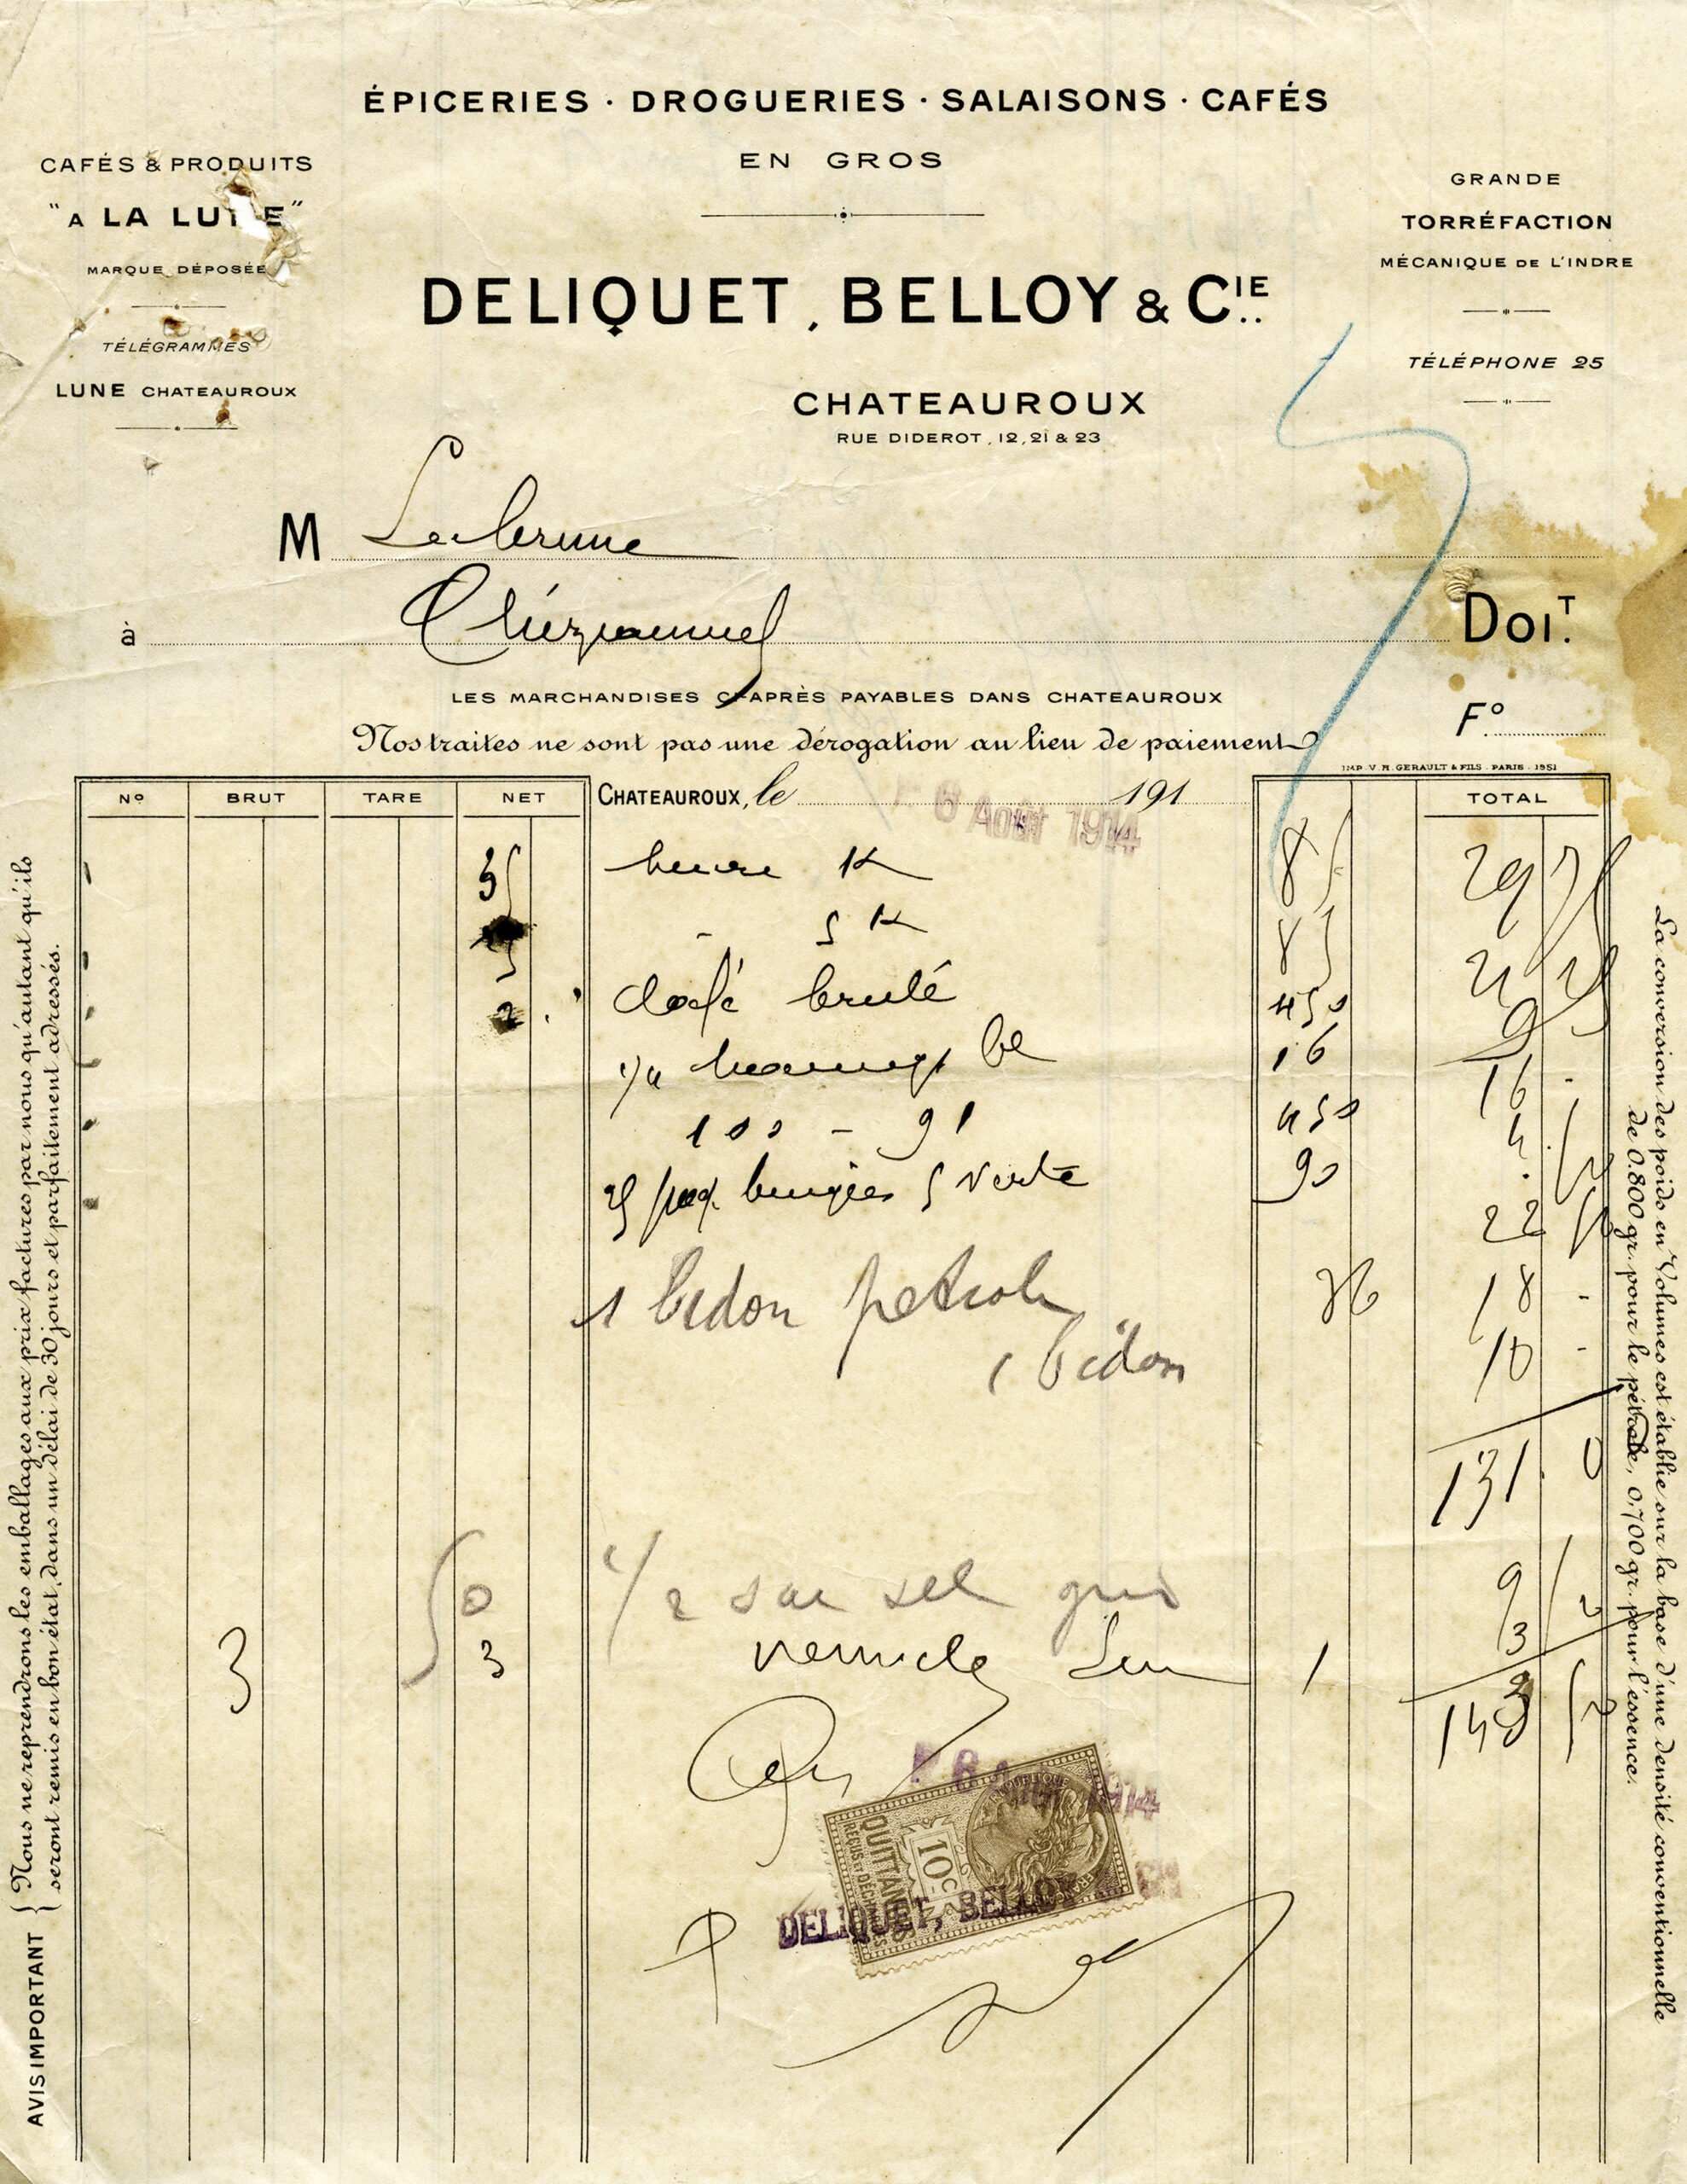 ÉPICERIES · DROGUERIES · SALAISONS · CAFÉS
EN GROS
CAFÉS & PRODUITS
"A LA LUNE"
MARQUE DÉPOSÉE
TÉLÉGRAMMES
LUNE CHATEAUROUX
GRANDE
TORRÉFACTION
MÉCANIQUE DE L'INDRE
TÉLÉPHONE 25
DELIQUET, BELLOY & CIE
CHATEAUROUX
RUE DIDEROT, 12, 21 & 23
M Labrune
à
DOIT.
LES MARCHANDISES CI-APRÈS PAYABLES DANS CHATEAUROUX
Fº
Nos traites ne sont pas une dérogation au lieu de paiement
IMP. V. H. GERAULT & FILS - PARIS - 1951
Nº BRUT TARE NET CHATEAUROUX, le 191 TOTAL
6 Août 1914
35 K 85 29 75
5 K 85 21 25
2 Café brulé 450 9
16 16 -
100 - 91 450 4 50
25 bougies 5 Verte 90 22 50
1 bidon petrole 36 18 -
1 bidon 10 -
131 0
50 1/2 sac sel gris 9
3 3 1 3
143 50
1914
QUITTANCES
REÇUS ET DÉCHARGES
10c
DELIQUET, BELLOY & Cie
AVIS IMPORTANT { Nous ne reprendrons les emballages aux prix facturés par nous qu'autant qu'ils
seront remis en bon état, dans un délai de 30 jours et parfaitement adressés.
La conversion des poids en Volumes est établie sur la base d'une densité conventionnelle
de 0.800 gr. pour le pétrole, 0,700 gr. pour l'essence.